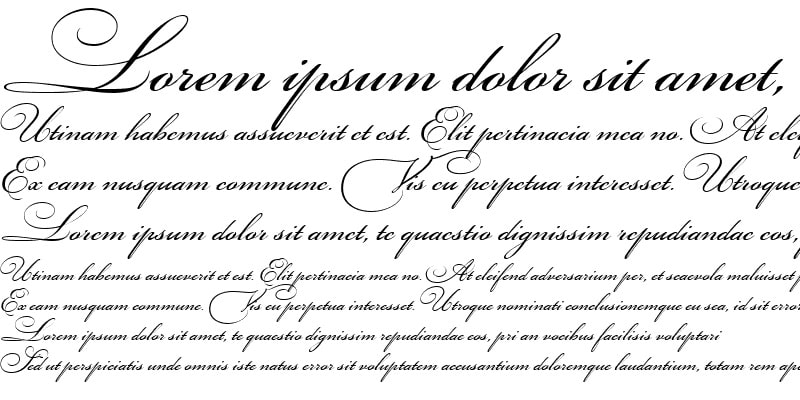 Lorem ipsum dolor sit amet,
Utinam habemus assueverit et est. Elit pertinacia mea no. At
Ex eam nusquam commune. Vis eu perpetua interesset. Utroque
Lorem ipsum dolor sit amet, te quaestio dignissim repudiandae eos,
Utinam habemus assueverit et est. Elit pertinacia mea no. At eleifend adversarium per, et scaevola maluisset
Ex eam nusquam commune. Vis eu perpetua interesset. Utroque nominati conclusionemque eu sea, id sit error
Lorem ipsum dolor sit amet, te quaestio dignissim repudiandae eos, pri an vocibus facilisis voluptari
Sed ut perspiciatis unde omnis iste natus error sit voluptatem accusantium doloremque laudantium, totam rem